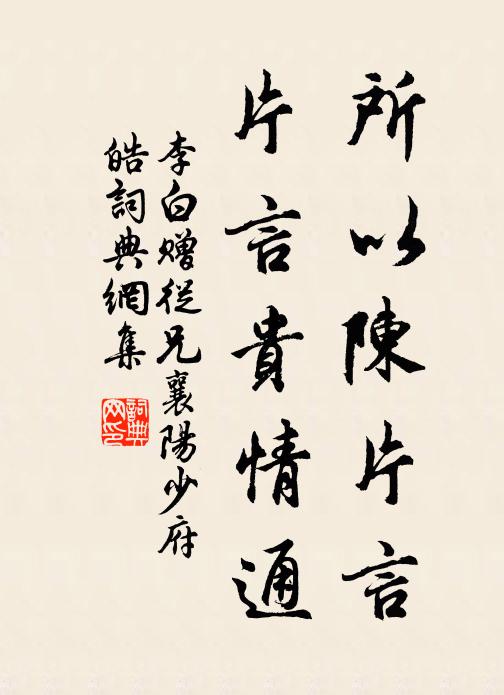 所以陳片言
片言貴情通
李白贈從兄襄陽少府
皓詞典網集
詞典网印